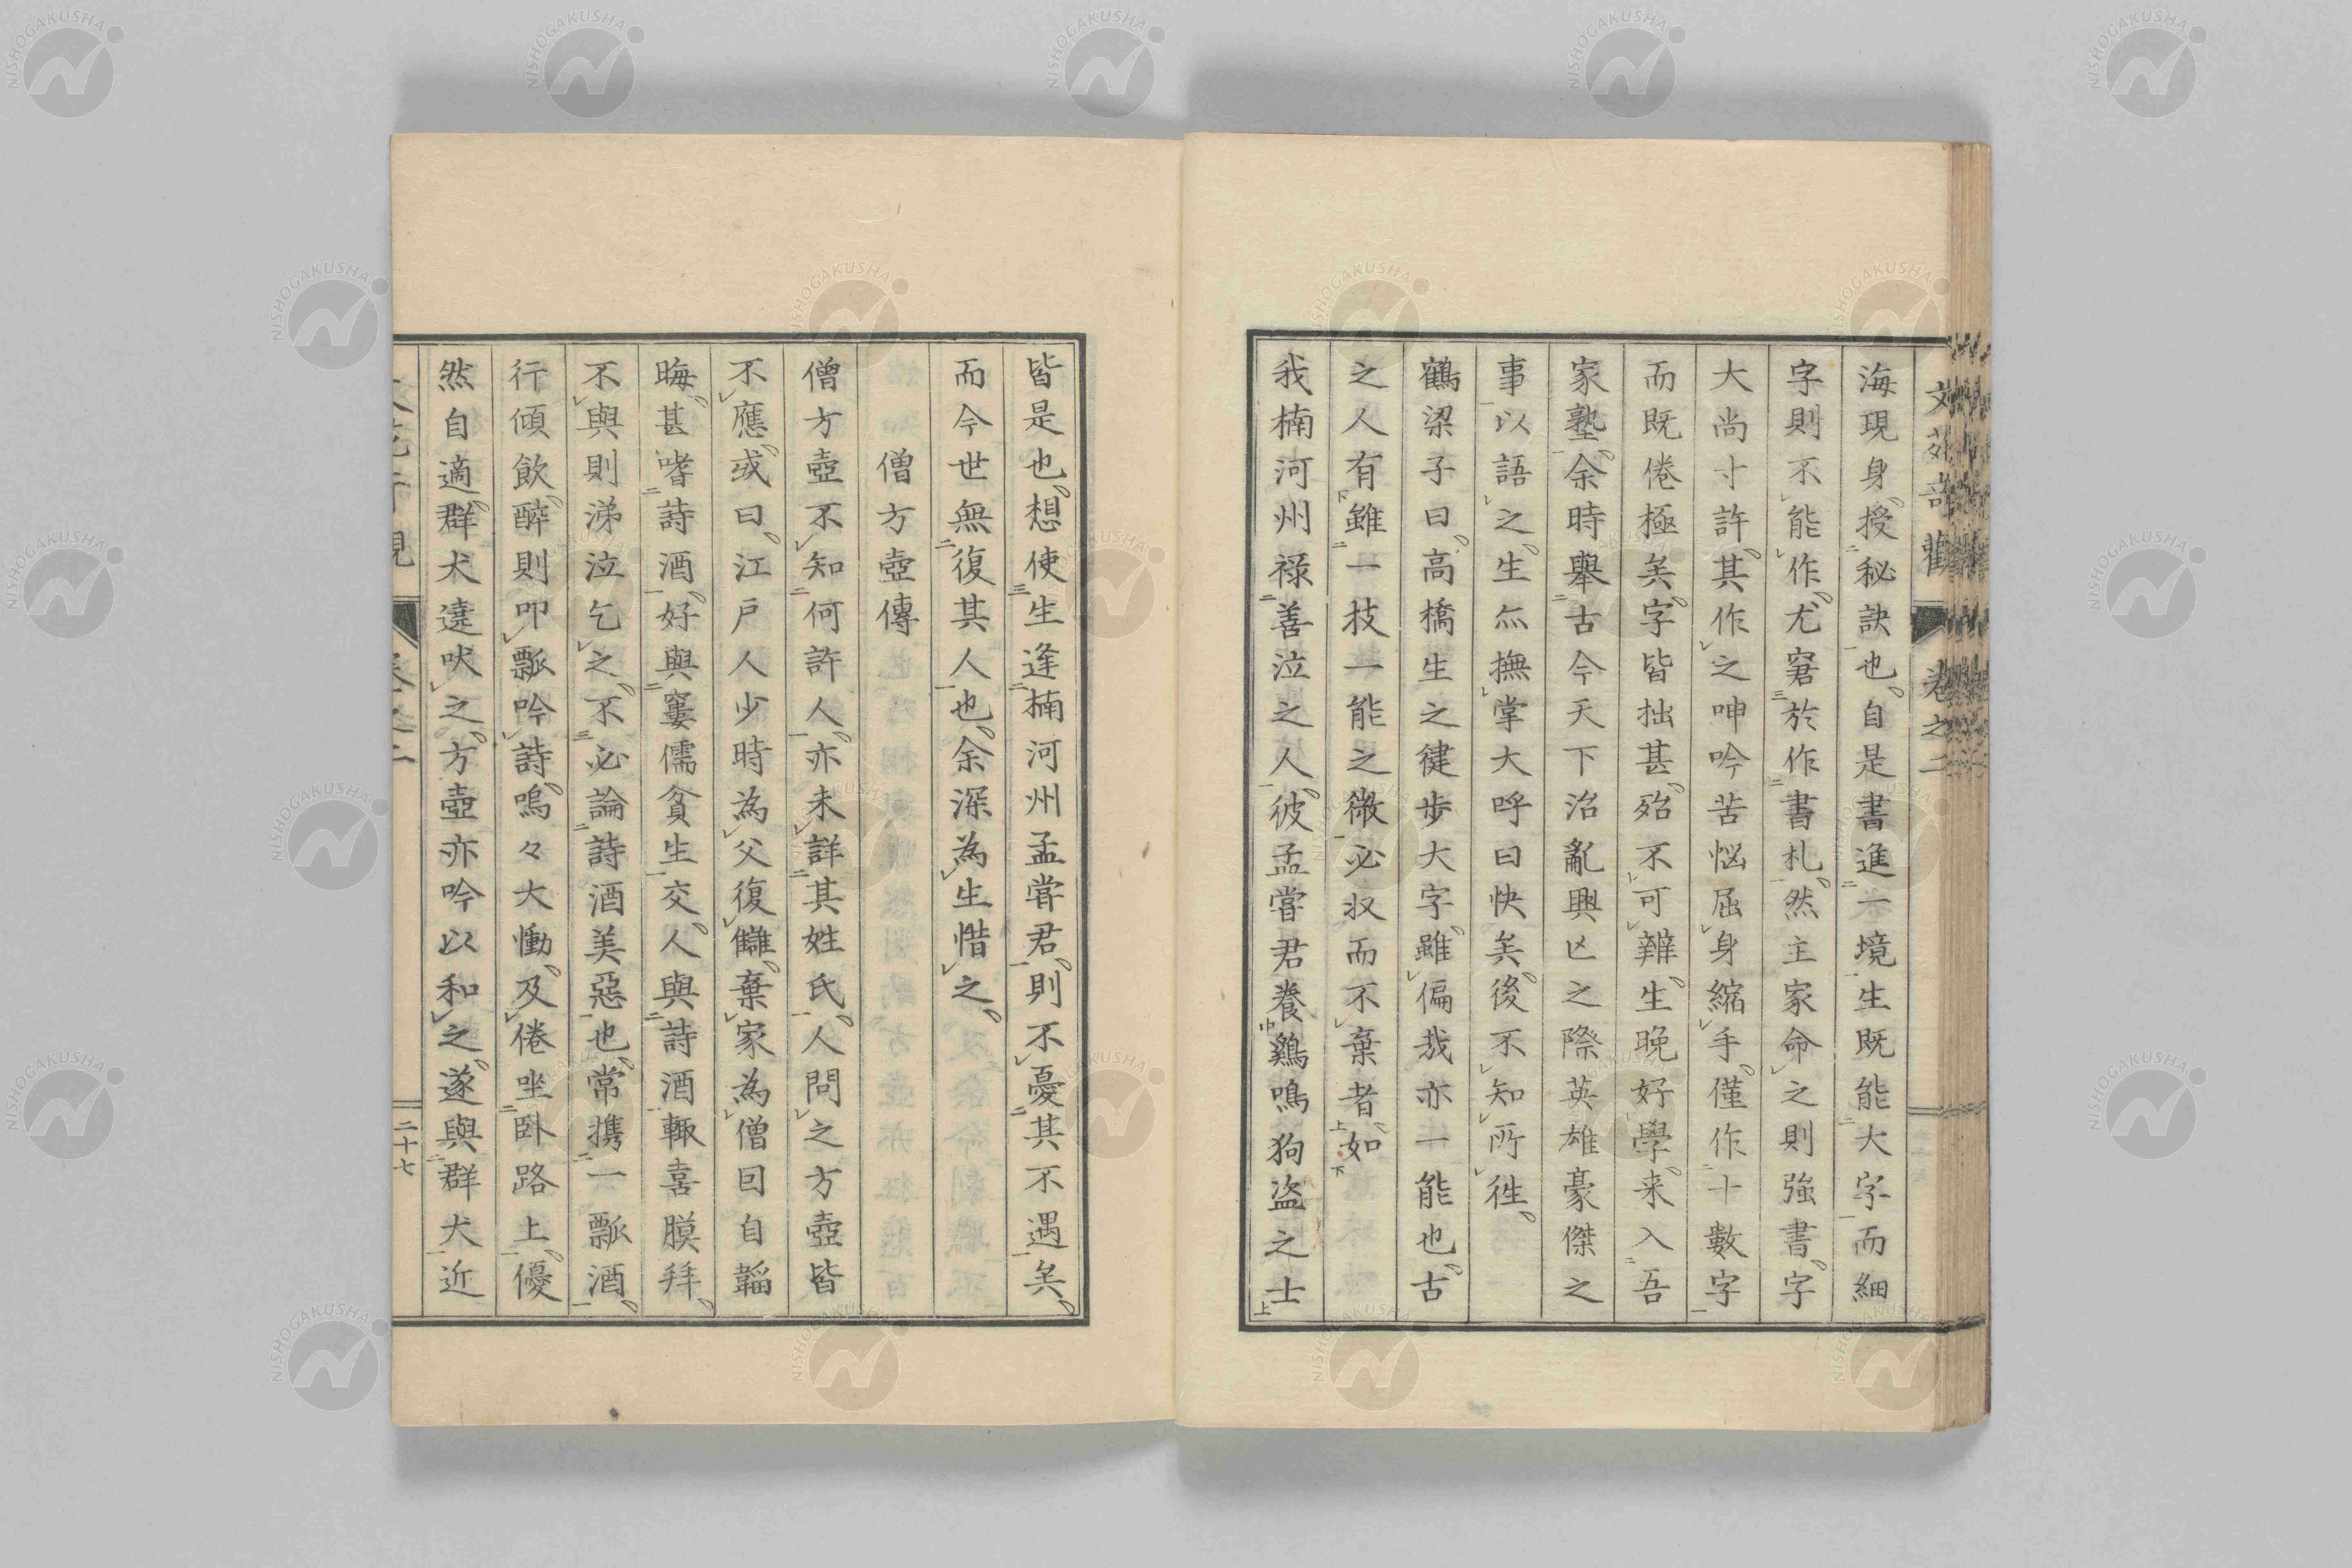 海現身授秘訣也自是書進一境生既能大字而細
字則不能作尤窘於作書札然主家命之則強書字
大尚寸許其作之呻吟苦悩屈身縮手僅作十數字
而既倦極矣字皆拙甚殆不可辨生晚好學來入吾
家塾余時舉古今天下治亂興亡之際英雄豪傑之
事以語之生亦撫掌大呼曰快矣後不知所徃
鶴梁子曰高橋生之健歩大字雖偏哉亦一能也古
之人有雖一技一能之微必収而不棄者如
我楠河州禄善泣之人彼孟嘗君養鷄鳴狗盗之士
皆是也想使生逢楠河州孟嘗君則不憂其不遇矣
而今世無復其人也余深為生惜之
僧方壺傳
僧方壺不知何許人亦未詳其姓氏人問之方壺皆
不應或曰江戸人少時為父復讎棄家為僧回自韜
晦甚嗜詩酒好與窶儒貧生交人與詩酒輙喜膜拜
不與則涕泣乞之不必論詩酒美惡也常携一瓢酒
行傾飲醉則叩瓢吟詩嗚々大慟及倦坐卧路上優
然自適群犬遶吠之方壺亦吟以和之遂與群犬近
二十七
NISHOGAKUSHA